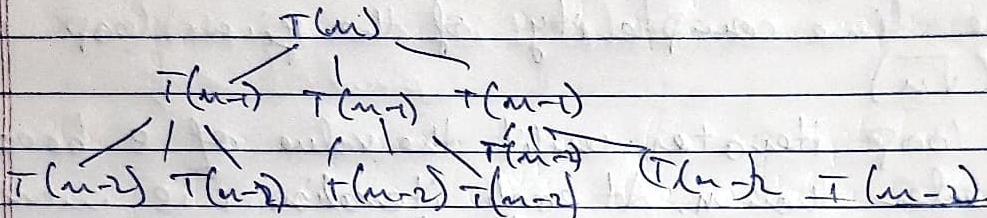 T(n)
T(n-1) T(n-1) T(n-1)
T(n-2)
T(n-2) T(n-2) T(n-2) T(n-2) (T(n-2 T(n-2)